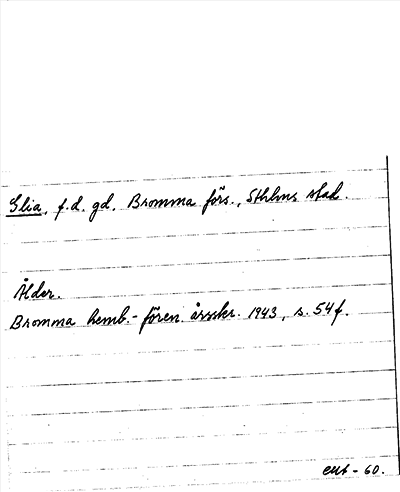 Glia, f.d. gd. Bromma förs., Sthlms stad.
Ålder.
Bromma hemb.-fören. årsskr. 1943, s. 54 f.
EWB - 60.